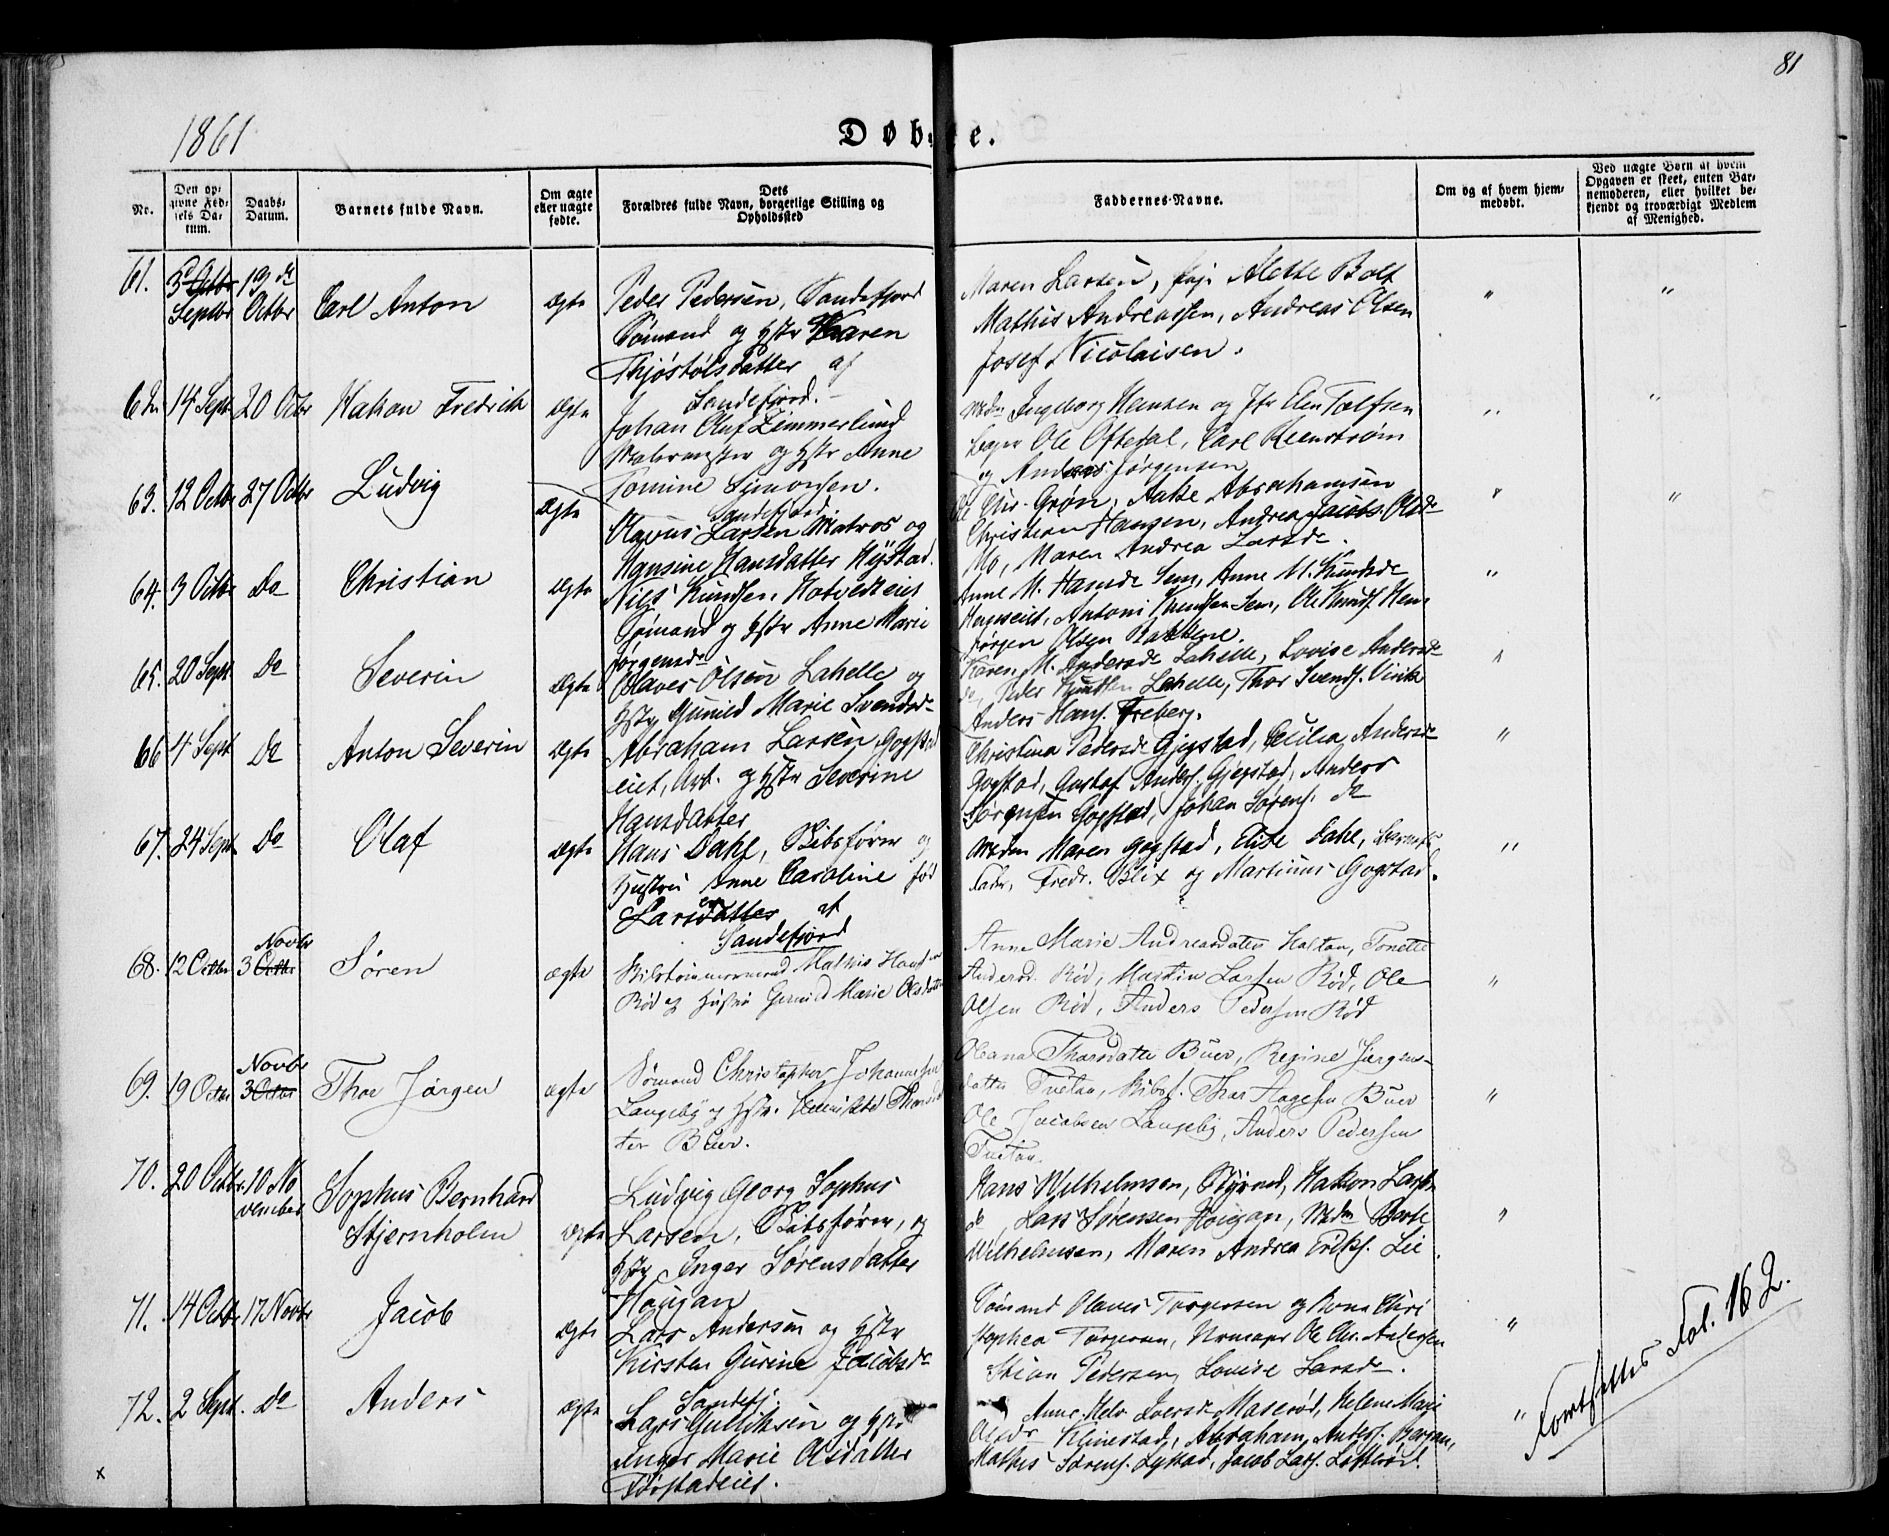 81
1861
Døbte.
No.
Den opgivne Fødsels Datum.
Daabs-Datum.
Barnets fulde Navn.
Om ægte eller uægte fødte.
Dets Forældres fulde Navn, borgerlige Stilling og Opholdssted
Faddernes Navne.
Om og af hvem hjemmedøbt.
Ved uægte Børn af hvem Opgaven er skeet, enten Barnemoderen, eller hvilket bekjendt og troværdigt Medlem af Menighed.
61. 5 Octbr Septbr 13 de Octbr Carl Anton Ægte Peder Pedersen, Sandefjord
Sømand og Hstr Karen
Thjøstølsdatter af
Sandefjord.
Maren Larsen, Alette Bolt
Mathis Andreassen, Andreas Olsen
Josef Nicolaisen.
62. 14 Sept. 20 Octbr Hakon Fredrik Ægte Johan Oluf Zimmerlund
Malermester og Hstr Anne
Tomine Simonsen.
Sandefjord.
Mdm Ingeborg Hansen og Jfr Elen Tolfsen
Ole Oftedal, Carl Reenstrøm
og Anders Jørgensen
63. 12 Octbr 27 Octbr Ludvig Ægte Olavus Larsen Matros og
Hansine Hansdatter Hystad.
Ole Chr. Grøn, Aake Abrahamsen
Christian Hansen, Andrea Jacobs. Olsdr
Mo, Maren Andrea Larsdr.
64. 3 Octbr Do Christian Ægte Niels Knudsen Hotvedteiet
Sømand og Hstr Anne Marie
Jørgensdr
Anne M. Hansdr Sem, Anne M. Knudsdr
Antoni Knudsen Sem, Ole Knuds.
Jørgen Olsen Bakkene.
65. 20 Sept Do Severin Ægte Olaves Olsen Lahelle og
Hstr Gunild Marie Svendsdr
Karen M. Andersdr Lahelle, Lovise Andersdr
do, Peder Knutsen Lahelle, Thor Svends. Virik
Anders Hans. Freberg.
66 4 Sept Do Anton Severin Ægte Abraham Larsen Gogstad
eiet, Arb. og Hstr Severine
Hansdatter
Christina Pedersdr Gjegstad, Cecilia Andersdr
Gogstad, Gustaf Anders. Gjegstad, Anders
Sørensen Gogstad, Johan Sørens. do
67. 24 Sept Do Olaf Ægte Hans Dahl, Skibsfører og
Hustru Anne Caroline fød
Larsdatter af
Sandefjord
Mdm Maren Gogstad, Elise Dahl, Barnets
Fader, Fredr. Blix og Martinus Gogstad.
68. 12 Octbr 3 Octbr Novbr Søren ægte Skibstømmermand Mathis Hansen
Rød og Hustru Gunild Marie Olsdatter
Anne Marie Andreasdatter Haslan, Tonette
Andersd. Rød, Martin Larsen Rød, Ole
Olsen Rød, Anders Pedersen Rød
69. 19 Octbr 3 Octbr Novbr Thor Jørgen ægte Sømand Christopher Johannesen
Langeby og Hstr. Thorsdat
ter Buer.
Oleana Thorsdatter Buer, Regine Jørgens-
datter Tveitan, Skibsf. Thor Aagesen Buer
Ole Jacobsen Langeby, Anders Pedersen
Tveitan
70. 20 Octbr. 10 No
vember Sophus Bernhard
Stjernholm Ægte Ludvig Georg Sophus
Larsen, Skibsfører, og
Hstr Inger Sørensdatter
Hougan
Hans Wilhelmsen, Hakon Larsen
do, Lars Sørensen Hougan, Mdm Berte
Wilhelmsen, Maren Andrea Eriks. Lie
71. 14 Octbr 17 Novbr Jacob Ægte Lars Andersen og Hstr
Kirsten Gurine Jacobsdr
Sandefj.
Sømand Olaves Torgersen og Kone Chri
stophea Torgersen, Ole Chr. Andersen
Stian Pedersen, Lovise Larsdr.
72. 2 Sept. Do Anders Ægte Lars Gulliksen og Hstr
Inger Marie Olsdatter
Fjørstadeiet.
Anne Helv. Iversdr Maserød, Helene Mari
Olsdr Klinestad, Abraham Anders. Bergan,
Mathis Sørens. Lystad, Jacob Lars. Løfterød.
Fortsættes Fol. 162.
x